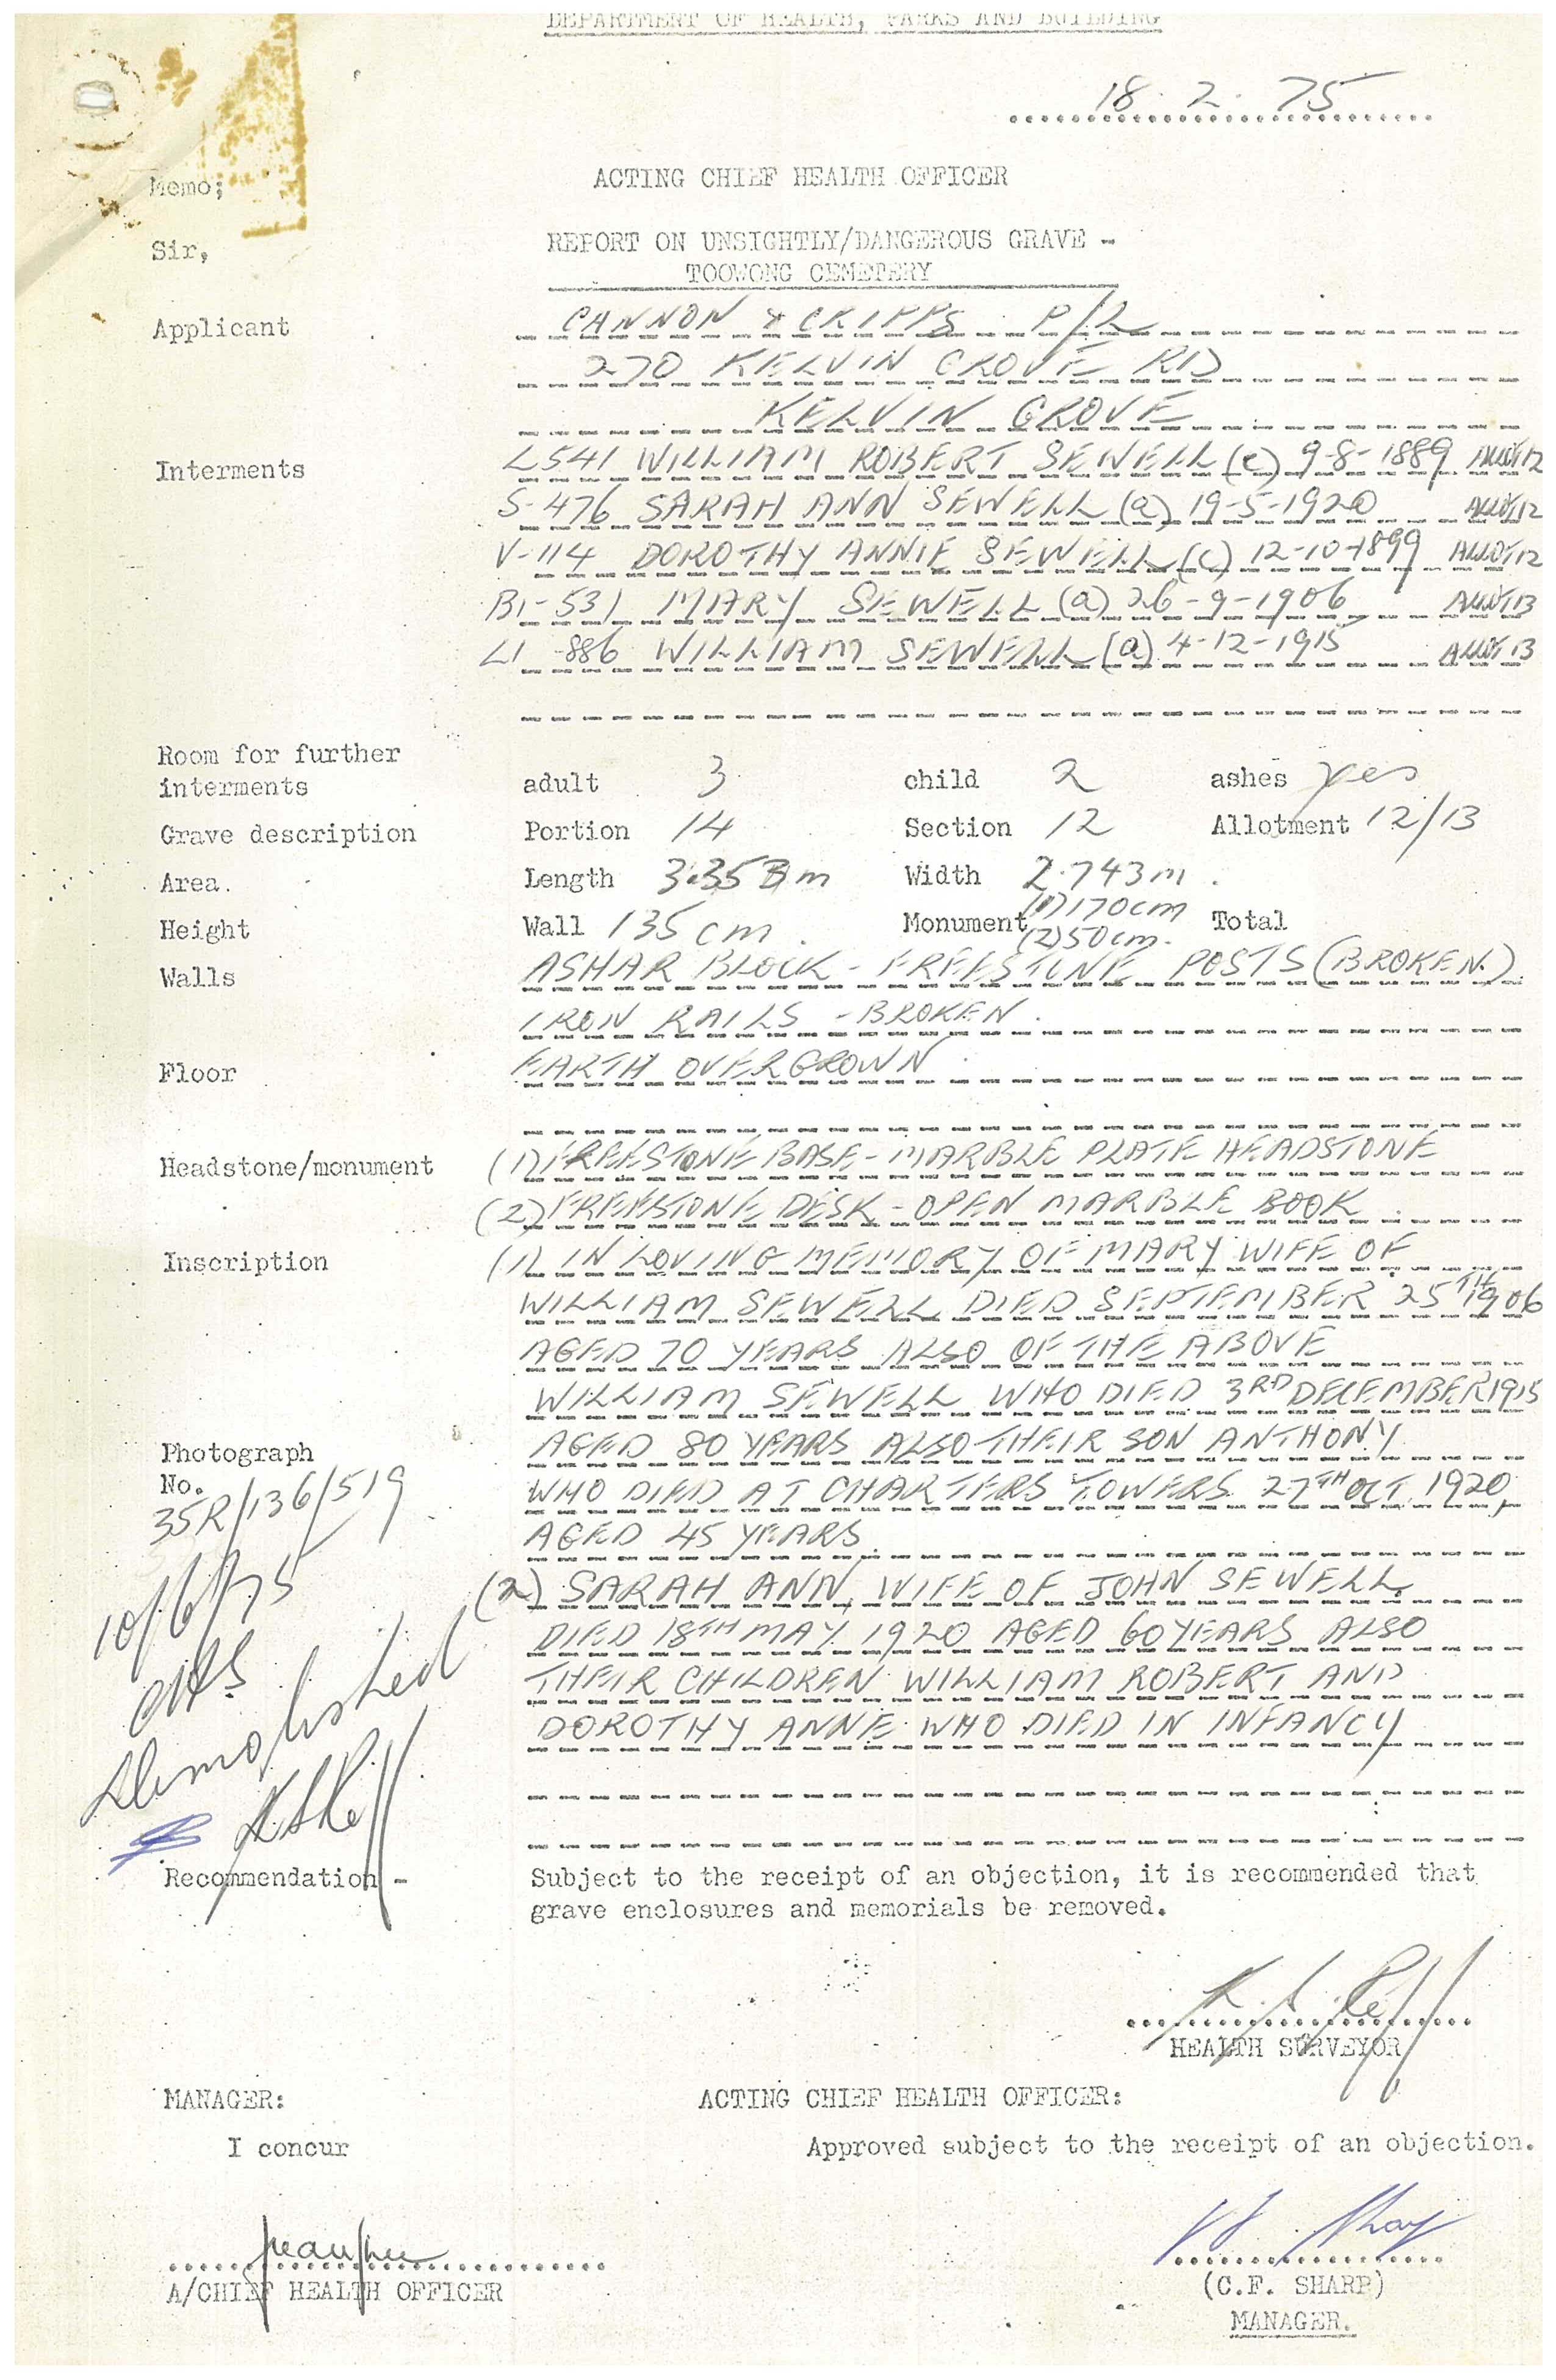 DEPARTMENT OF HEALTH, PARKS AND BUILDING
18.2.75
ACTING CHIEF HEALTH OFFICER
Memo;
Sir,
REPORT ON UNSIGHTLY/DANGEROUS GRAVE -
TOOWONG CEMETERY
Applicant CANNON & CRIPPS P/L
270 KELVIN GROVE RD
KELVIN GROVE
Interments L541 WILLIAM ROBERT SEWELL (c) 9-8-1889 ALLOT 12
S-476 SARAH ANN SEWELL (a) 19-5-1920 ALLOT 12
V-114 DOROTHY ANNIE SEWELL (c) 12-10-1899 ALLOT 12
B1-531 MARY SEWELL (a) 26-9-1906 ALLOT 13
L1-886 WILLIAM SEWELL (a) 4-12-1915 ALLOT 13
Room for further
interments adult 3 child 2 ashes yes
Grave description Portion 14 Section 12 Allotment 12/13
Area. Length 3.353m Width 2.743m.
Height Wall 135cm. Monument (1) 170cm Total
(2) 50cm.
Walls ASHAR BLOCK - FREESTONE POSTS (BROKEN).
IRON RAILS - BROKEN.
Floor EARTH OVERGROWN.
Headstone/monument (1) FREESTONE BASE - MARBLE PLATE HEADSTONE
(2) FREESTONE DESK - OPEN MARBLE BOOK.
Inscription (1) IN LOVING MEMORY OF MARY WIFE OF
WILLIAM SEWELL DIED SEPTEMBER 25TH 1906
AGED 70 YEARS ALSO OF THE ABOVE
WILLIAM SEWELL WHO DIED 3RD DECEMBER 1915
AGED 80 YEARS ALSO THEIR SON ANTHONY
WHO DIED AT CHARTERS TOWERS 27TH OCT. 1920,
AGED 45 YEARS.
Photograph
No.
35R/136/519
10/6/75
demolished
(2) SARAH ANN, WIFE OF JOHN SEWELL.
DIED 18TH MAY 1920 AGED 60 YEARS ALSO
THEIR CHILDREN WILLIAM ROBERT AND
DOROTHY ANNE WHO DIED IN INFANCY
Recommendation - Subject to the receipt of an objection, it is recommended that
grave enclosures and memorials be removed.
HEALTH SURVEYOR
MANAGER: ACTING CHIEF HEALTH OFFICER:
I concur Approved subject to the receipt of an objection.
A/CHIEF HEALTH OFFICER (C.F. SHARP)
MANAGER.